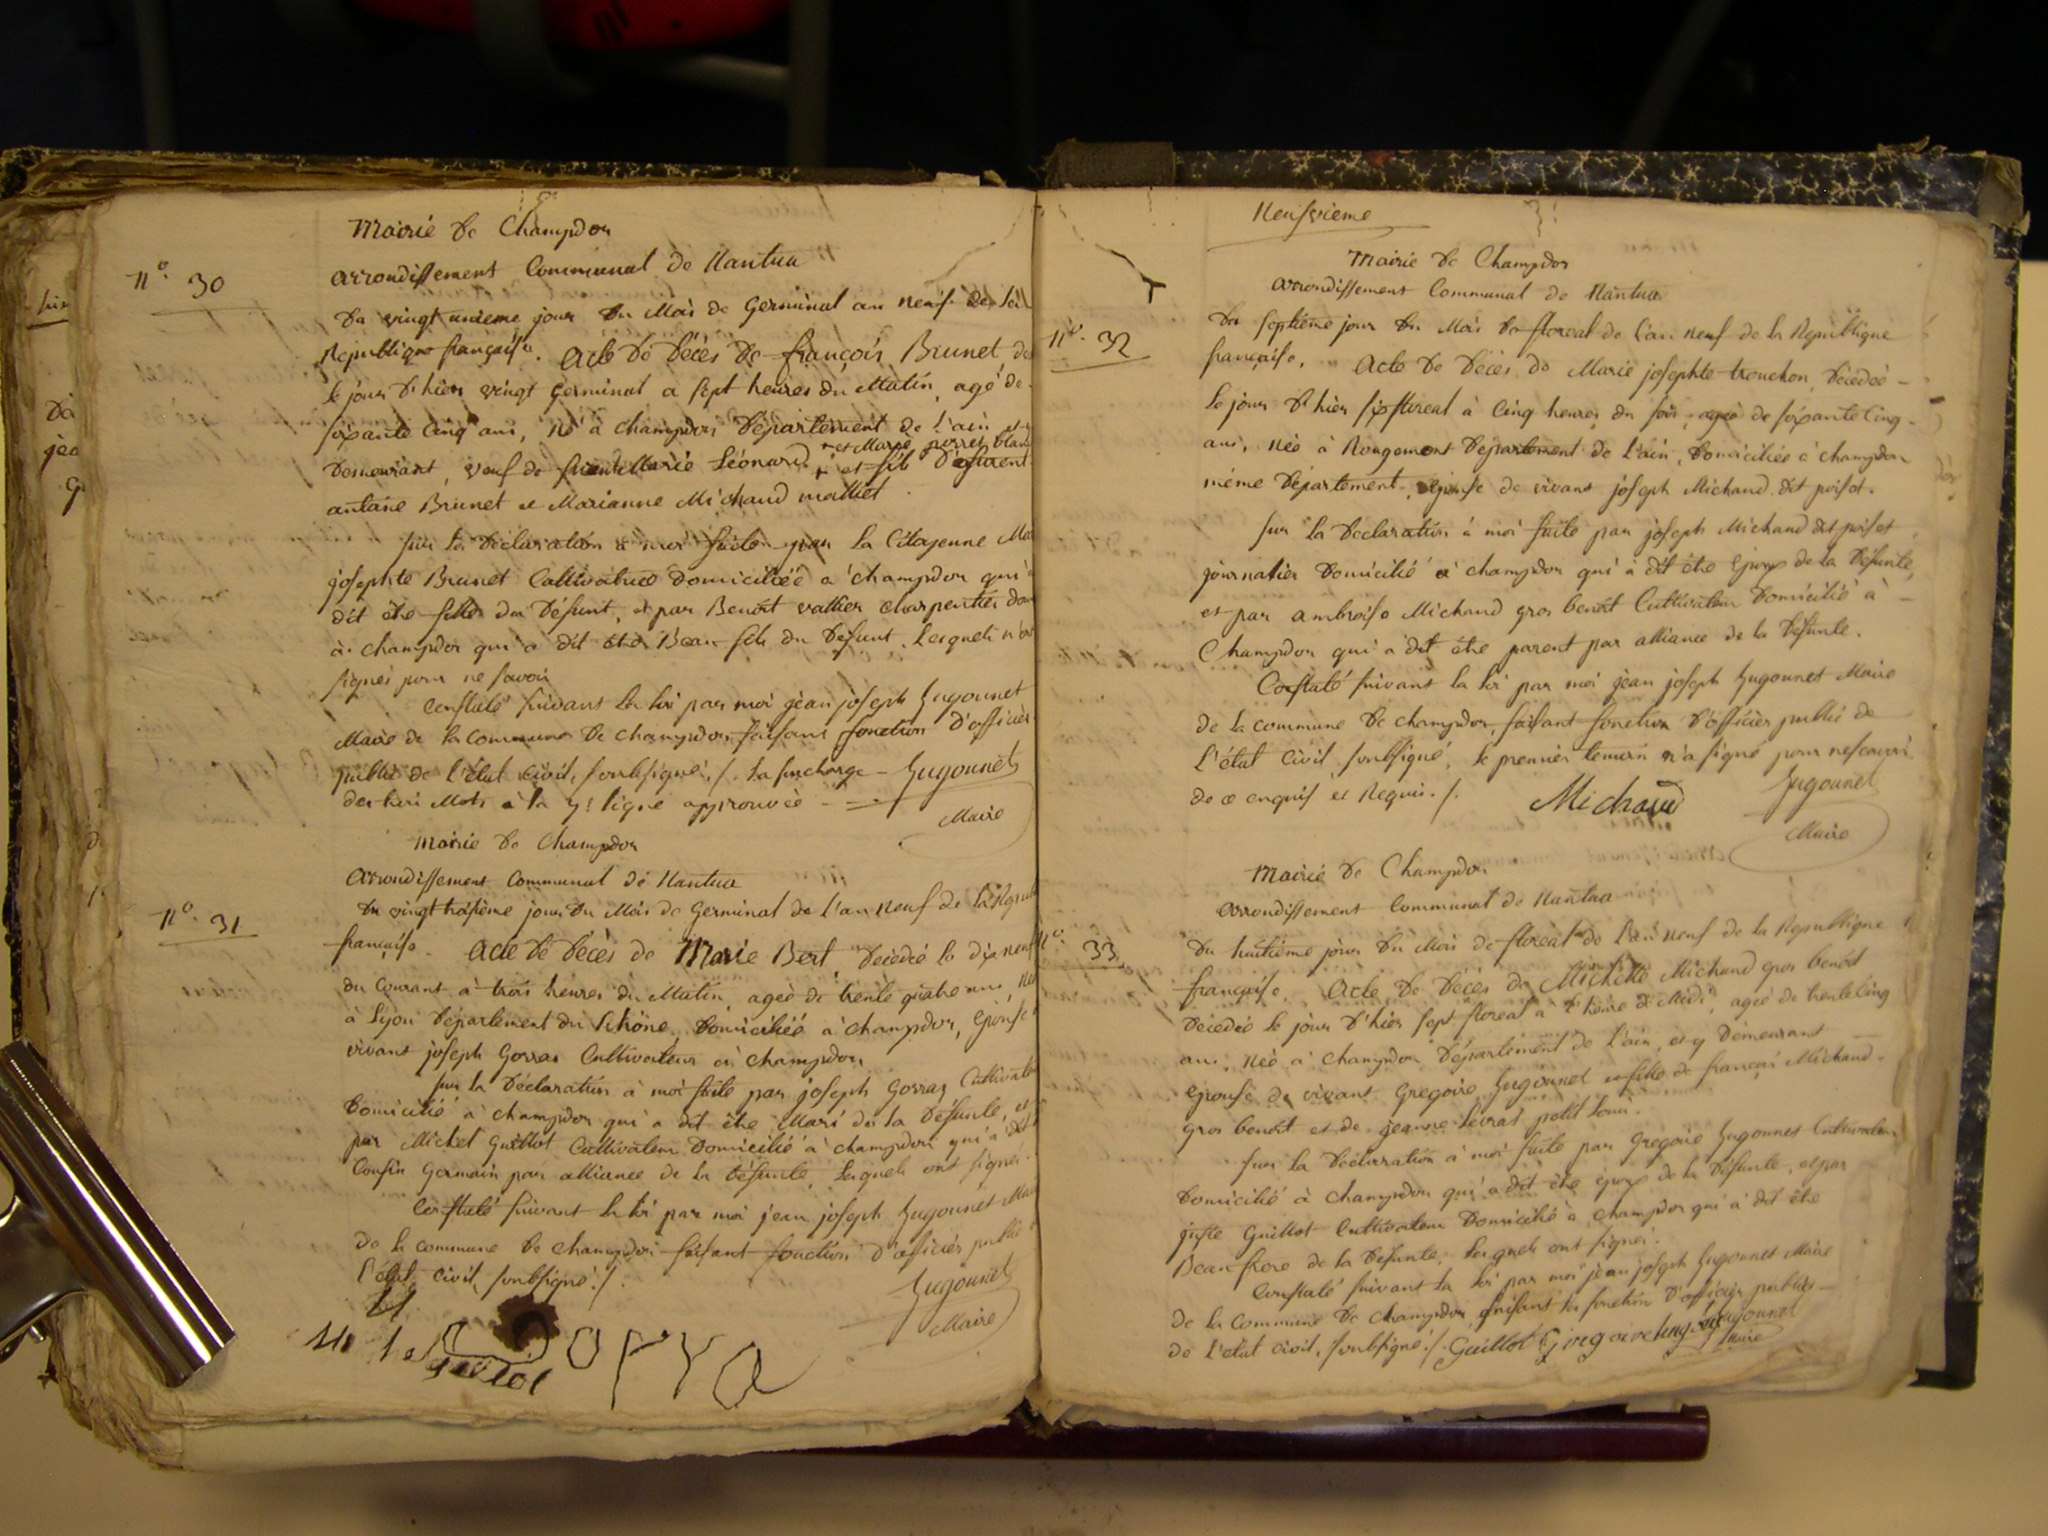 Mairie de Champdor
arrondissement Communal de Nantua
N°. 30
Du vingt unieme jour du Mois de Germinal an neuf de la
Republique française. Acte de décès de françois Brunet de
le jour d'hier vingt Germinal a sept heures du Matin, agé de
soixante Cinq ans, né a champdor Département de l'ain et y
et Marie perret blan
Demeurant, veuf de Marie Léonard et fils
antoine Brunet et Marianne Michaud malliet
Sur la Déclaration à moi faite par la Citoyenne Ma
josephte Brunet Cultivatrice domiciliée a champdor qui a
dit être fille du défunt, et par Benoit vallier charpentier dom
à champdor qui a dit être Beau fils du défunt. Lesquels n'ont
signés pour ne savoir
Constaté suivant la loi par moi jean joseph Jugounet
Maire de la commune de champdor faisant fonction d'officier
public de l'état civil, soubsigné ./. la surcharge Jugounet
des trois Mots à la 7e ligne approuvée
Maire
Mairie de Champdor
arrondissement Communal de Nantua
N°. 31
Du vingt troisième jour du Mois de Germinal de l'an neuf de la Repub
française. Acte de décès de Marie Bert décédée le dix neuf
du Courant à trois heures du Matin, agée de trente quatre ans, née
à Lyon Département du Rhône, domiciliée à champdor, épouse
vivant joseph Gorraz Cultivateur à champdor
Sur la déclaration à moi faite par joseph Gorraz Cultivate
domicilié à champdor qui a dit être Mari de la défunte, et
par Michel Guillot Cultivateur domicilié à champdor qui a dit
Cousin Germain par alliance de la défunte, Lesquels ont signés.
Constaté suivant la loi par moi jean joseph Jugounet Mai
de la commune de champdor faisant fonction d'officier public
l'état civil soubsigné ./.
Jugounet
Maire
Neufvieme
Mairie de Champdor
arrondissement Communal de Nantua
N°. 32
Du septième jour du Mois de floreal de l'an neuf de la Republique
française. Acte de décès de Marie josephte trouchon, décédée
le jour d'hier six floreal à Cinq heures du soir, agée de soixante Cinq
ans, née à Rougemont Département de l'ain, domiciliée à champdor
même Département, épouse de vivant joseph Michaud dit poisot.
Sur la declaration à moi faite par joseph Michaud dit poisot
journalier domicilié à champdor qui a dit être Epoux de la défunte,
et par ambroise Michaud gros benoit Cultivateur domicilié à
Champdor qui a dit être parent par alliance de la défunte.
Constaté suivant la loi par moi jean joseph Jugounet Maire
de la commune de champdor, faisant fonction d'officier public de
l'état civil soubsigné, le premier temoin n'a signé pour ne scavoir
de ce enquis et Requis ./. Michaud Jugounet
Maire
Mairie de Champdor
arrondissement Communal de Nantua
N°. 33
Du huitième jour du Mois de floreal de l'an neuf de la Republique
française. Acte de décès de Michelle Michaud gros benoit
décédée le jour d'hier sept floreal à l'heure de Midi, agée de trente Cinq
ans, née à champdor Département de l'ain, et y demeurant
épouse de vivant Gregoire Jugounet et fille de françois Michaud
gros benoit et de jeanne Levrat petit Louis.
Sur la déclaration à moi faite par Gregoire Jugounet Cultivateur
domicilié à champdor qui a dit être epoux de la défunte, et par
juste Guillot Cultivateur domicilié à champdor qui a dit être
Beau frere de la défunte, Lesquels ont signés.
Constaté suivant la loi par moi jean joseph Jugounet Maire
de la Commune de champdor, faisant les fonction d'officier public
de l'état civil, soubsigné ./. Guillot
Maire